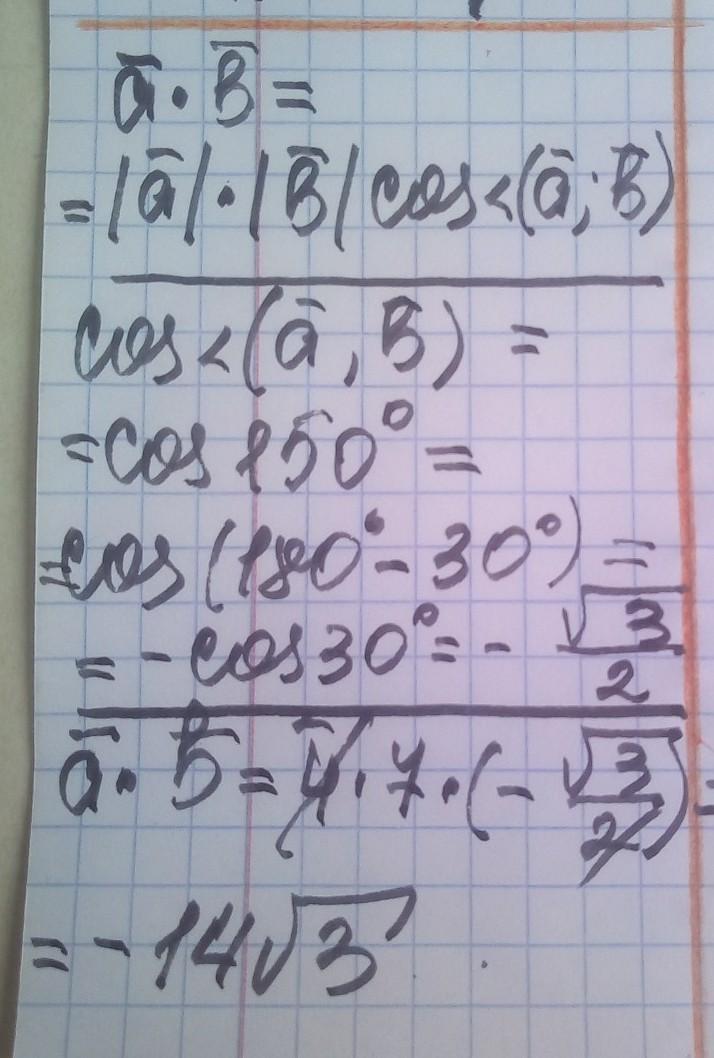 ā · b̄ =
= |ā| · |b̄| cos<(ā; b̄)
cos<(ā, b̄) =
= cos 150° =
= cos (180° - 30°) =
= - cos 30° = - √3/2
ā · b̄ = 4 · 7 · (- √3/2) =
= - 14√3